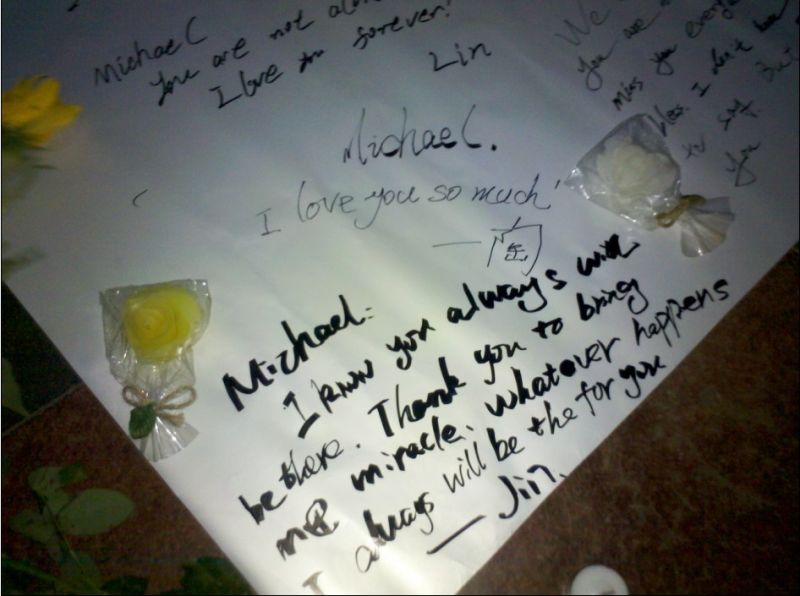 Michael
You are not alone
I love you forever!
Lin
We
You are
miss you every
I don't
to say. But
you
Michael.
I love you so much!
Michael:
I know you always will
be there. Thank you to bring
me miracle. whatever happens
I always will be the for you
— Jin.